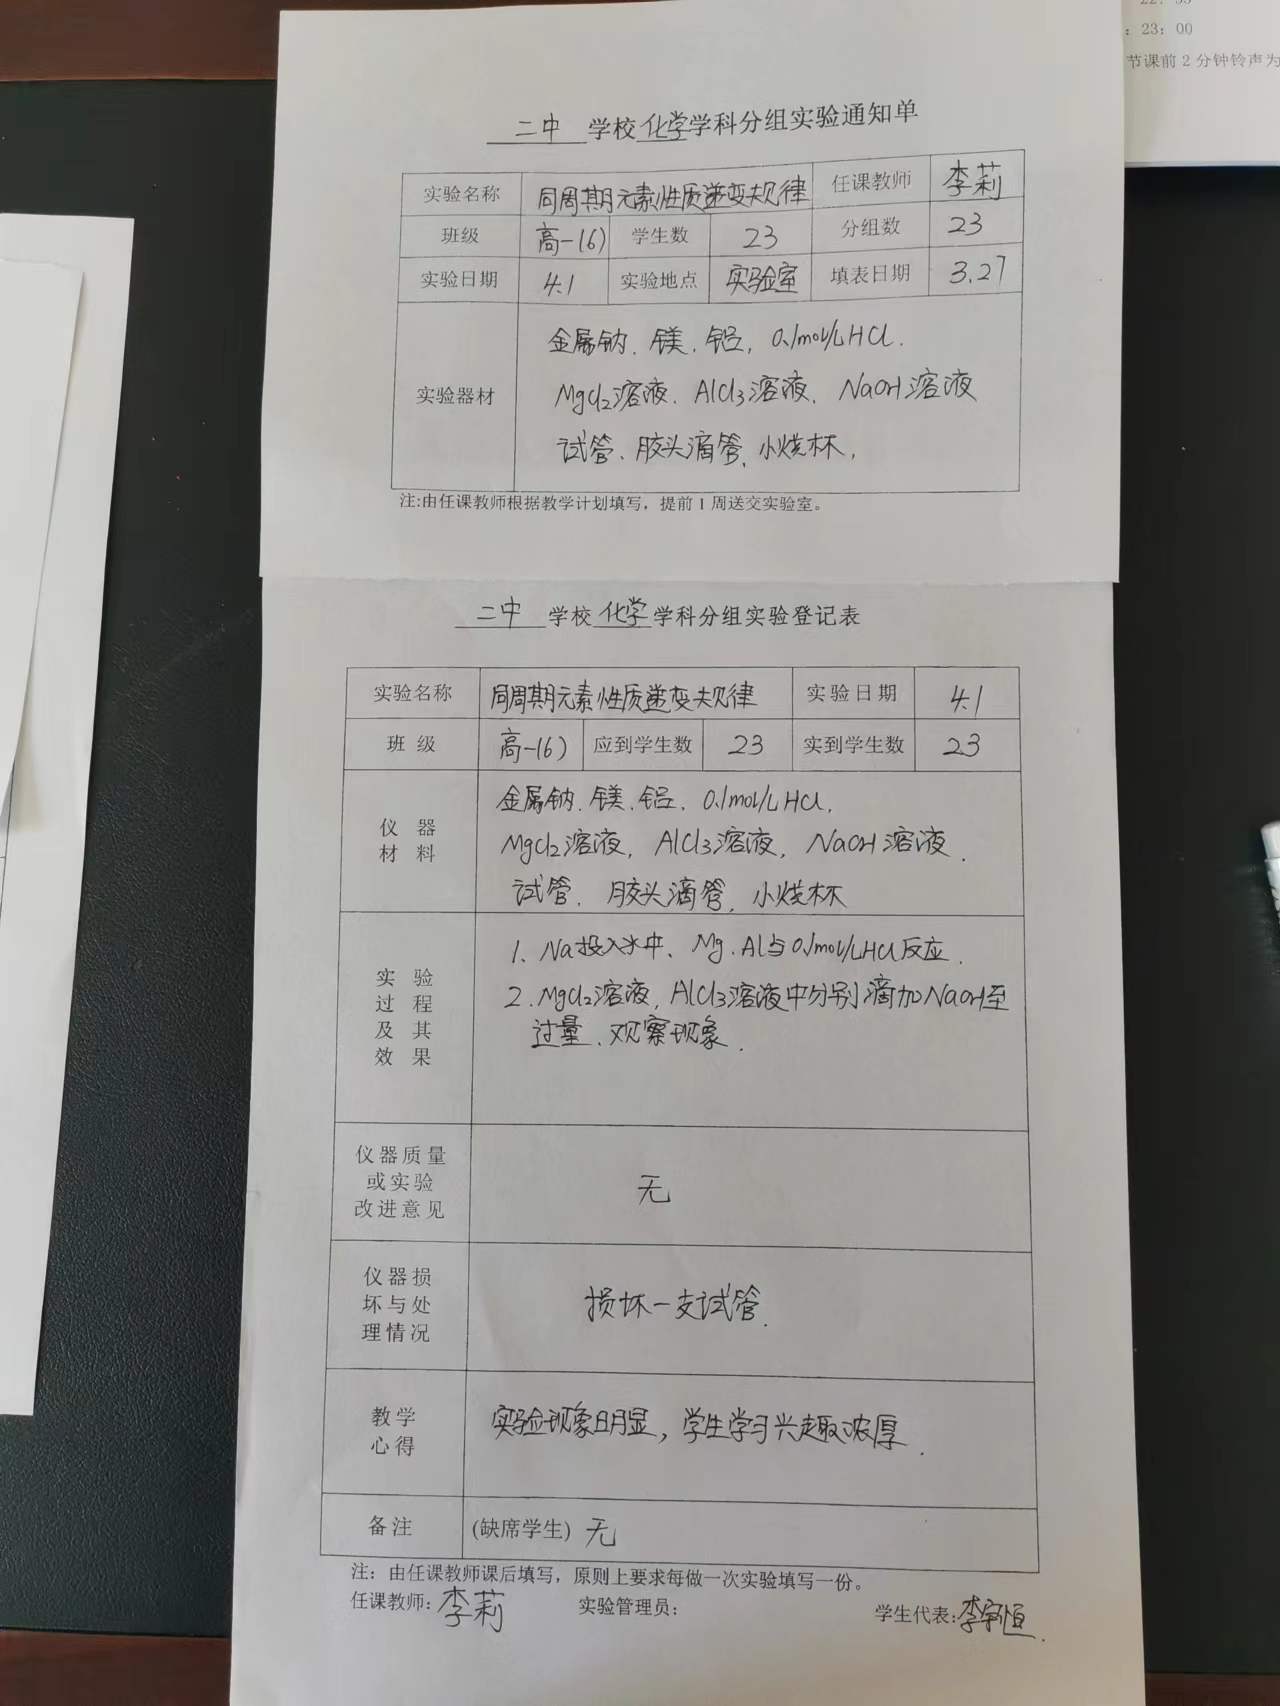 22: 55
: 23: 00
节课前2分钟铃声为
二中 学校 化学 学科分组实验通知单
实验名称 同周期元素性质递变规律 任课教师 李莉
班级 高一(6) 学生数 23 分组数 23
实验日期 4.1 实验地点 实验室 填表日期 3.27
实验器材
金属钠、镁、铝, 0.1mol/L HCl.
MgCl2溶液. AlCl3溶液, NaOH溶液
试管、胶头滴管、小烧杯,
注:由任课教师根据教学计划填写，提前1周送交实验室。
二中 学校 化学 学科分组实验登记表
实验名称 同周期元素性质递变规律 实验日期 4.1
班 级 高一(6) 应到学生数 23 实到学生数 23
仪 器
材 料
金属钠、镁、铝、0.1mol/L HCl,
MgCl2溶液, AlCl3溶液, NaOH溶液.
试管、胶头滴管、小烧杯
实 验
过 程
及 其
效 果
1、Na投入水中、Mg、Al与0.1mol/LHCl反应.
2. MgCl2溶液, AlCl3溶液中分别滴加NaOH至
过量、观察现象.
仪器质量
或实验
改进意见
无
仪器损
坏与处
理情况
损坏一支试管.
教学
心得
实验现象明显, 学生学习兴趣浓厚.
备注 (缺席学生) 无
注：由任课教师课后填写，原则上要求每做一次实验填写一份。
任课教师: 李莉 实验管理员: 学生代表: 李宇恒.